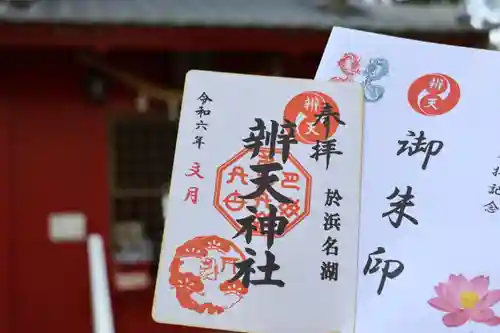 奉拝
於浜名湖
辨天神社
令和六年
文月
辨天
辨天
御朱印
拝記念